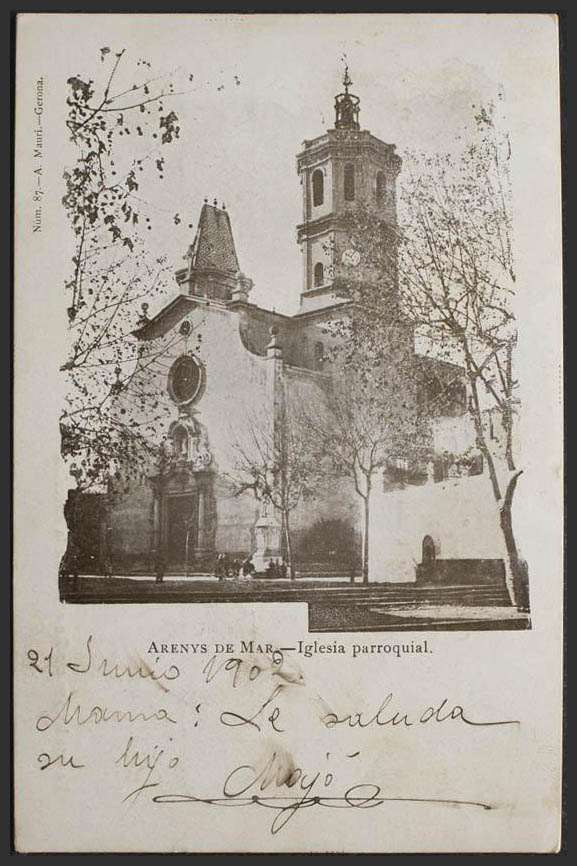 Núm. 87.—A. Mauri.—Gerona.
ARENYS DE MAR.—Iglesia parroquial.
21 Junio 1902.
Mama: Le saluda
su hijo
Majó